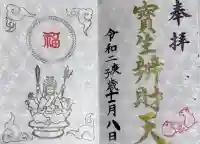 奉拝
寶生辨財天
令和二庚子歳十一月八日
福